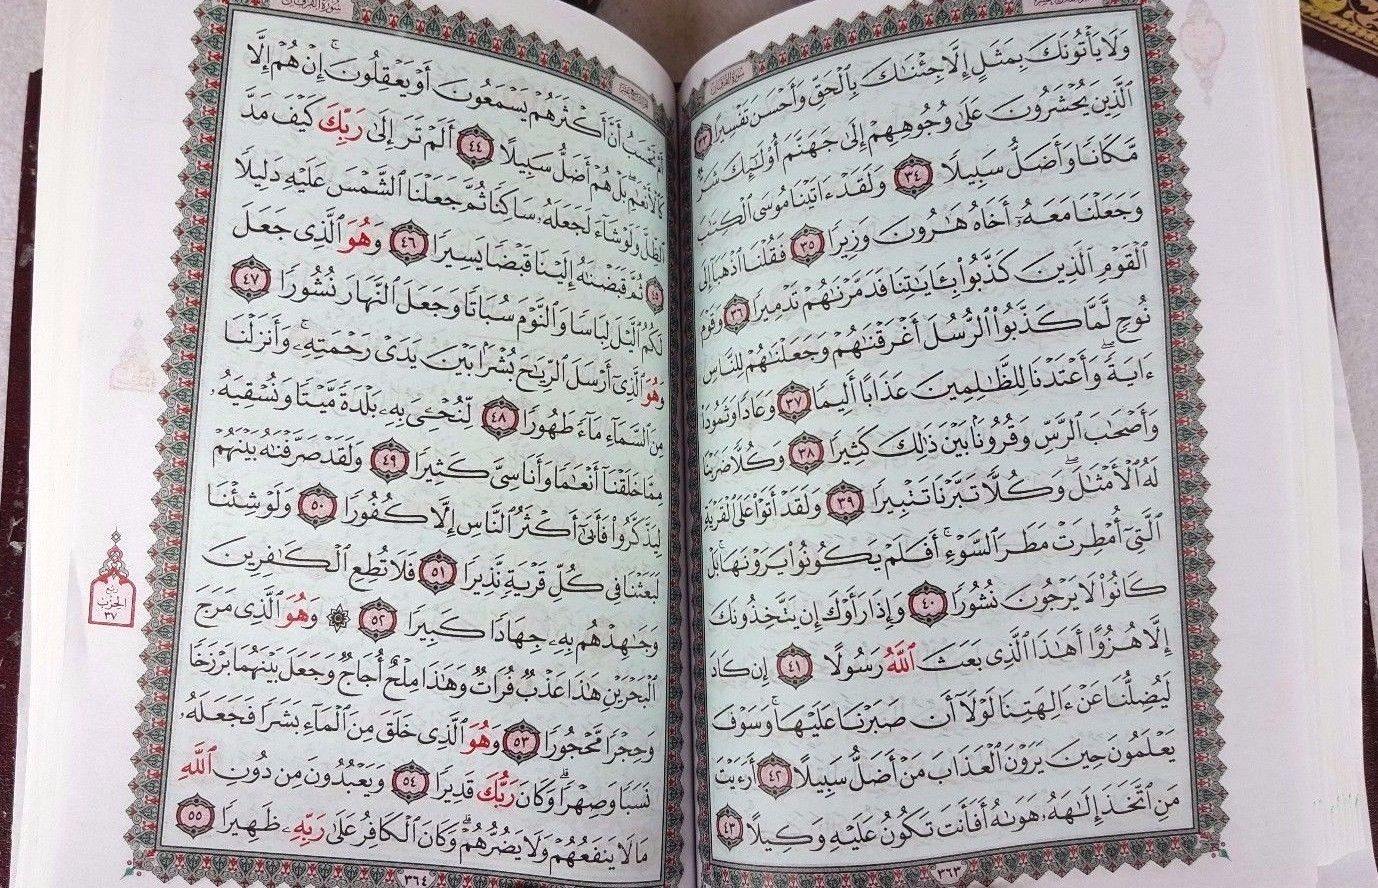 سُورَةُ الفُرْقَانِ
وَلَا يَأْتُونَكَ بِمَثَلٍ إِلَّا جِئْنَٰكَ بِٱلْحَقِّ وَأَحْسَنَ تَفْسِيرًا ٣٣
ٱلَّذِينَ يُحْشَرُونَ عَلَىٰ وُجُوهِهِمْ إِلَىٰ جَهَنَّمَ أُو۟لَٰٓئِكَ شَرٌّ
مَّكَانًا وَأَضَلُّ سَبِيلًا ٣٤ وَلَقَدْ ءَاتَيْنَا مُوسَى ٱلْكِتَٰبَ
وَجَعَلْنَا مَعَهُۥٓ أَخَاهُ هَٰرُونَ وَزِيرًا ٣٥ فَقُلْنَا ٱذْهَبَآ إِلَى
ٱلْقَوْمِ ٱلَّذِينَ كَذَّبُوا۟ بِـَٔايَٰتِنَا فَدَمَّرْنَٰهُمْ تَدْمِيرًا ٣٦ وَقَوْمَ
نُوحٍ لَّمَّا كَذَّبُوا۟ ٱلرُّسُلَ أَغْرَقْنَٰهُمْ وَجَعَلْنَٰهُمْ لِلنَّاسِ
ءَايَةً ۖ وَأَعْتَدْنَا لِلظَّٰلِمِينَ عَذَابًا أَلِيمًا ٣٧ وَعَادًا وَثَمُودَا۟
وَأَصْحَٰبَ ٱلرَّسِّ وَقُرُونًۢا بَيْنَ ذَٰلِكَ كَثِيرًا ٣٨ وَكُلًّا ضَرَبْنَا
لَهُ ٱلْأَمْثَٰلَ ۖ وَكُلًّا تَبَّرْنَا تَتْبِيرًا ٣٩ وَلَقَدْ أَتَوْا۟ عَلَى ٱلْقَرْيَةِ
ٱلَّتِىٓ أُمْطِرَتْ مَطَرَ ٱلسَّوْءِ ۚ أَفَلَمْ يَكُونُوا۟ يَرَوْنَهَا ۚ بَلْ
كَانُوا۟ لَا يَرْجُونَ نُشُورًا ٤٠ وَإِذَا رَأَوْكَ إِن يَتَّخِذُونَكَ
إِلَّا هُزُوًا أَهَٰذَا ٱلَّذِى بَعَثَ ٱللَّهُ رَسُولًا ٤١ إِن كَادَ
لَيُضِلُّنَا عَنْ ءَالِهَتِنَا لَوْلَآ أَن صَبَرْنَا عَلَيْهَا ۚ وَسَوْفَ
يَعْلَمُونَ حِينَ يَرَوْنَ ٱلْعَذَابَ مَنْ أَضَلُّ سَبِيلًا ٤٢ أَرَءَيْتَ
مَنِ ٱتَّخَذَ إِلَٰهَهُۥ هَوَىٰهُ أَفَأَنتَ تَكُونُ عَلَيْهِ وَكِيلًا ٤٣
٣٦٣
سُورَةُ الفُرْقَانِ
أَمْ تَحْسَبُ أَنَّ أَكْثَرَهُمْ يَسْمَعُونَ أَوْ يَعْقِلُونَ ۚ إِنْ هُمْ إِلَّا
كَٱلْأَنْعَٰمِ ۖ بَلْ هُمْ أَضَلُّ سَبِيلًا ٤٤ أَلَمْ تَرَ إِلَىٰ رَبِّكَ كَيْفَ مَدَّ
ٱلظِّلَّ وَلَوْ شَآءَ لَجَعَلَهُۥ سَاكِنًا ثُمَّ جَعَلْنَا ٱلشَّمْسَ عَلَيْهِ دَلِيلًا
٤٥ ثُمَّ قَبَضْنَٰهُ إِلَيْنَا قَبْضًا يَسِيرًا ٤٦ وَهُوَ ٱلَّذِى جَعَلَ
لَكُمُ ٱلَّيْلَ لِبَاسًا وَٱلنَّوْمَ سُبَاتًا وَجَعَلَ ٱلنَّهَارَ نُشُورًا ٤٧
وَهُوَ ٱلَّذِىٓ أَرْسَلَ ٱلرِّيَٰحَ بُشْرًۢا بَيْنَ يَدَىْ رَحْمَتِهِۦ ۚ وَأَنزَلْنَا
مِنَ ٱلسَّمَآءِ مَآءً طَهُورًا ٤٨ لِّنُحْـِۧىَ بِهِۦ بَلْدَةً مَّيْتًا وَنُسْقِيَهُۥ
مِمَّا خَلَقْنَآ أَنْعَٰمًا وَأَنَاسِىَّ كَثِيرًا ٤٩ وَلَقَدْ صَرَّفْنَٰهُ بَيْنَهُمْ
لِيَذَّكَّرُوا۟ فَأَبَىٰٓ أَكْثَرُ ٱلنَّاسِ إِلَّا كُفُورًا ٥٠ وَلَوْ شِئْنَا
لَبَعَثْنَا فِى كُلِّ قَرْيَةٍ نَّذِيرًا ٥١ فَلَا تُطِعِ ٱلْكَٰفِرِينَ
وَجَٰهِدْهُم بِهِۦ جِهَادًا كَبِيرًا ٥٢ ۞ وَهُوَ ٱلَّذِى مَرَجَ
ٱلْبَحْرَيْنِ هَٰذَا عَذْبٌ فُرَاتٌ وَهَٰذَا مِلْحٌ أُجَاجٌ وَجَعَلَ بَيْنَهُمَا بَرْزَخًا
وَحِجْرًا مَّحْجُورًا ٥٣ وَهُوَ ٱلَّذِى خَلَقَ مِنَ ٱلْمَآءِ بَشَرًا فَجَعَلَهُۥ
نَسَبًا وَصِهْرًا ۗ وَكَانَ رَبُّكَ قَدِيرًا ٥٤ وَيَعْبُدُونَ مِن دُونِ ٱللَّهِ
مَا لَا يَنفَعُهُمْ وَلَا يَضُرُّهُمْ ۗ وَكَانَ ٱلْكَافِرُ عَلَىٰ رَبِّهِۦ ظَهِيرًا ٥٥
٣٦٤
ربع
الحزب
٣٧